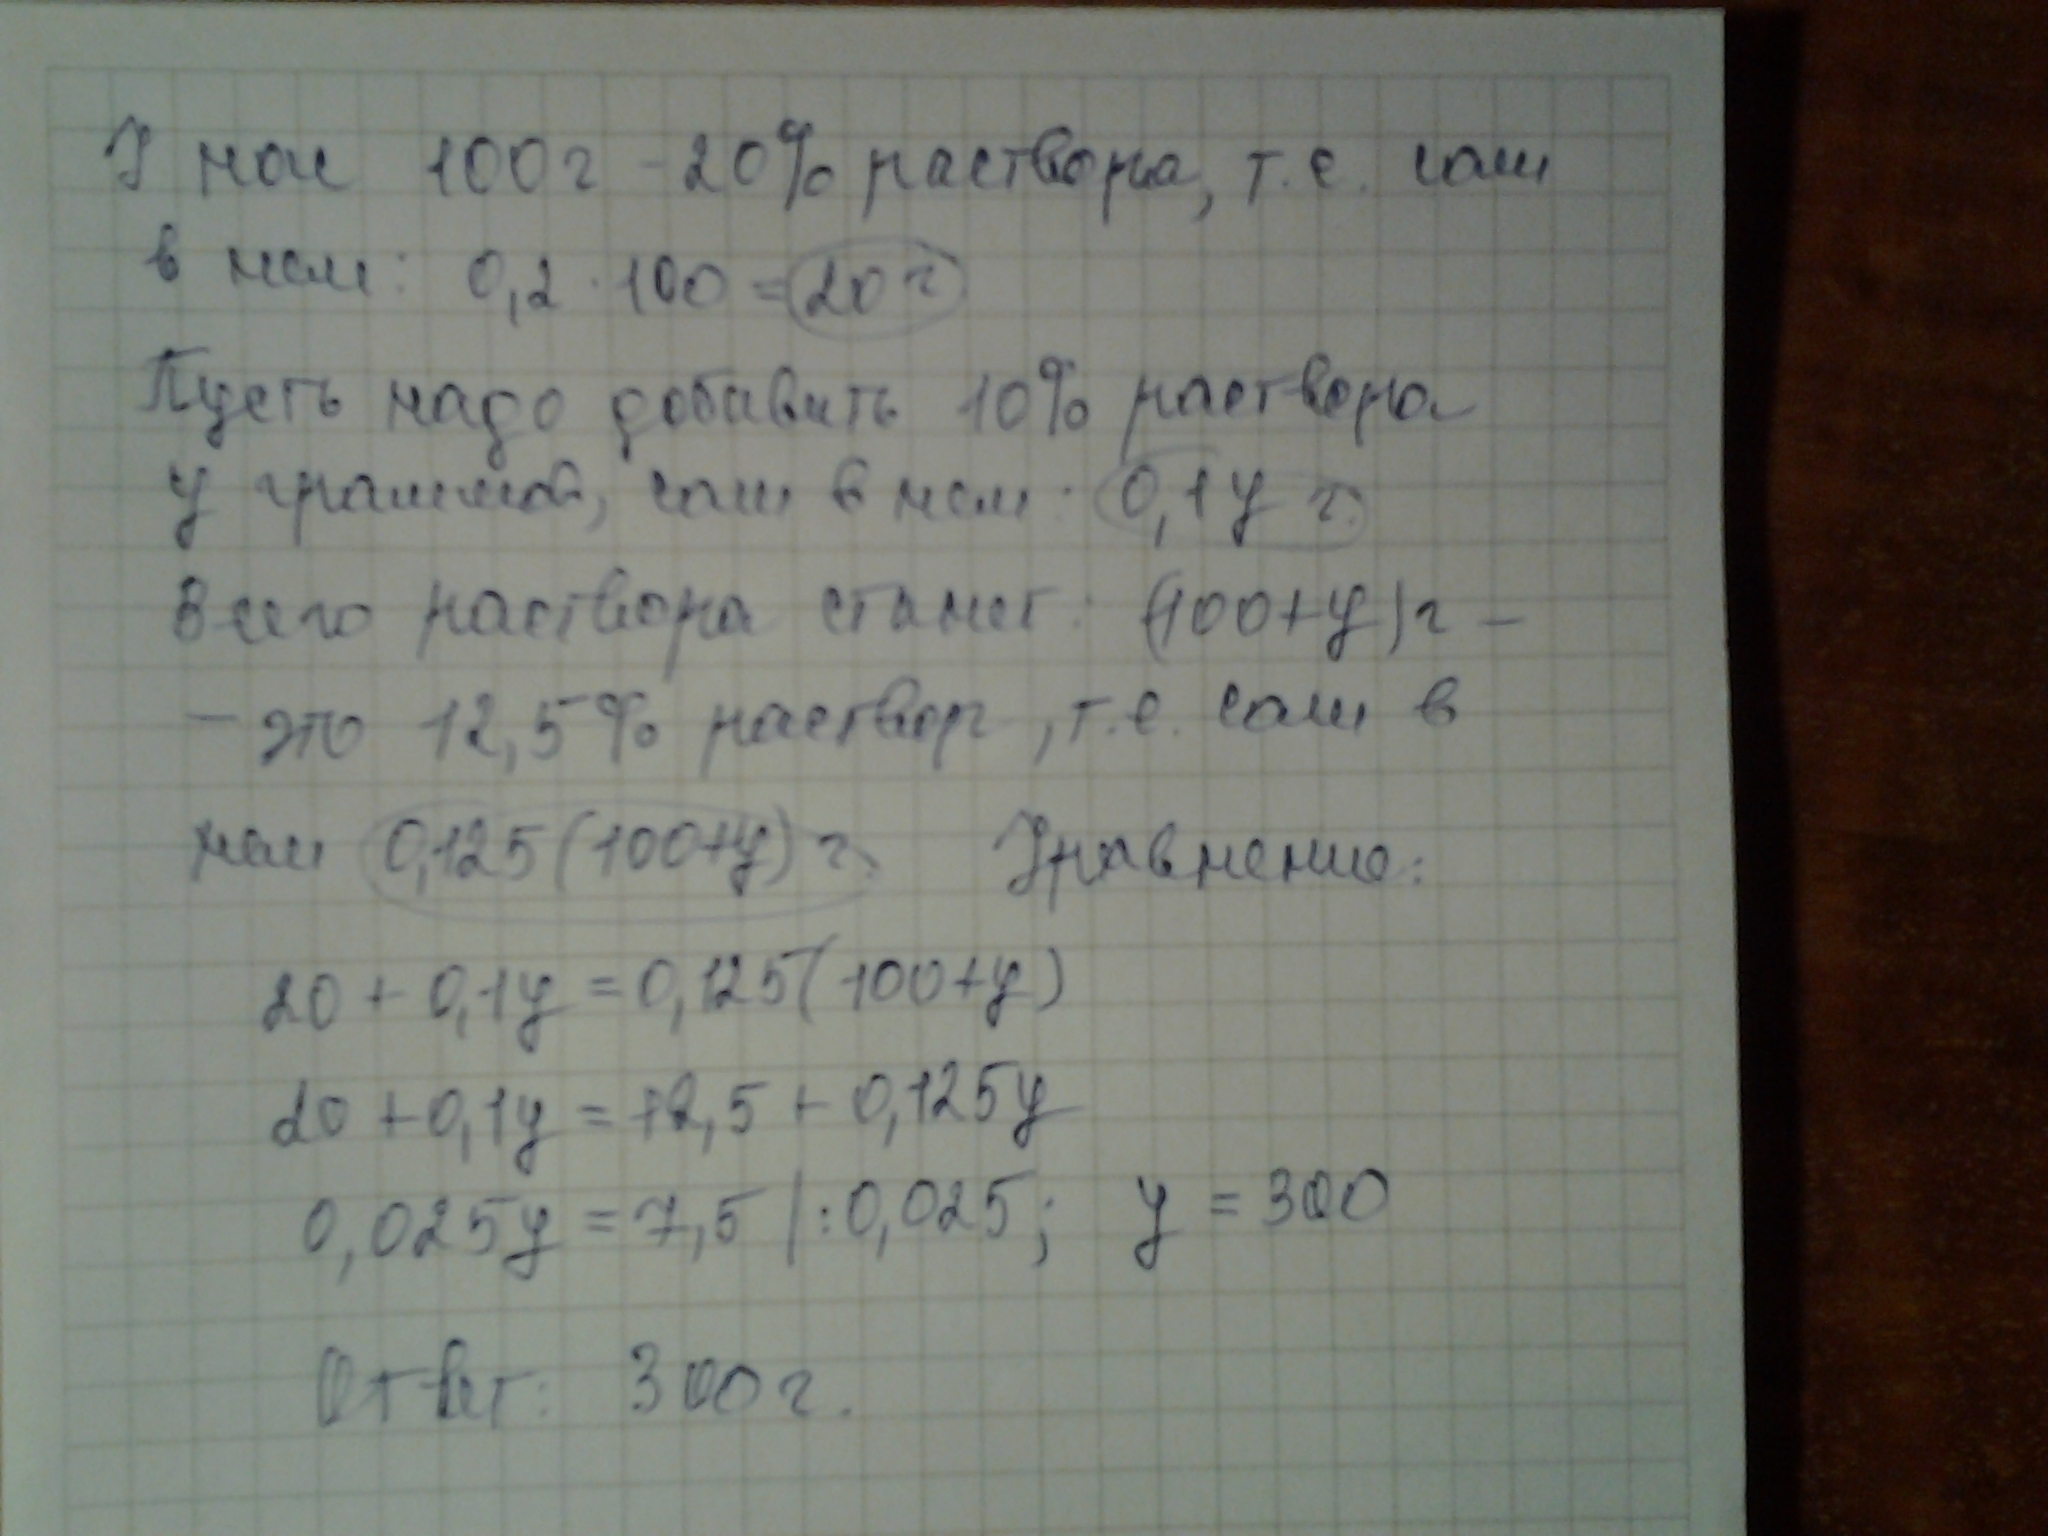 У нас 100 г - 20% раствора, т.е. соли
в нем: 0,2 · 100 = 20 г
Пусть надо добавить 10% раствора
y граммов, соли в нем: 0,1y г.
Всего раствора станет: (100+y) г –
– это 12,5% раствор, т.е. соли в
нем 0,125(100+y) г. Уравнение:
20 + 0,1y = 0,125(100+y)
20 + 0,1y = 12,5 + 0,125y
0,025y = 7,5 |:0,025; y = 300
Ответ: 300 г.